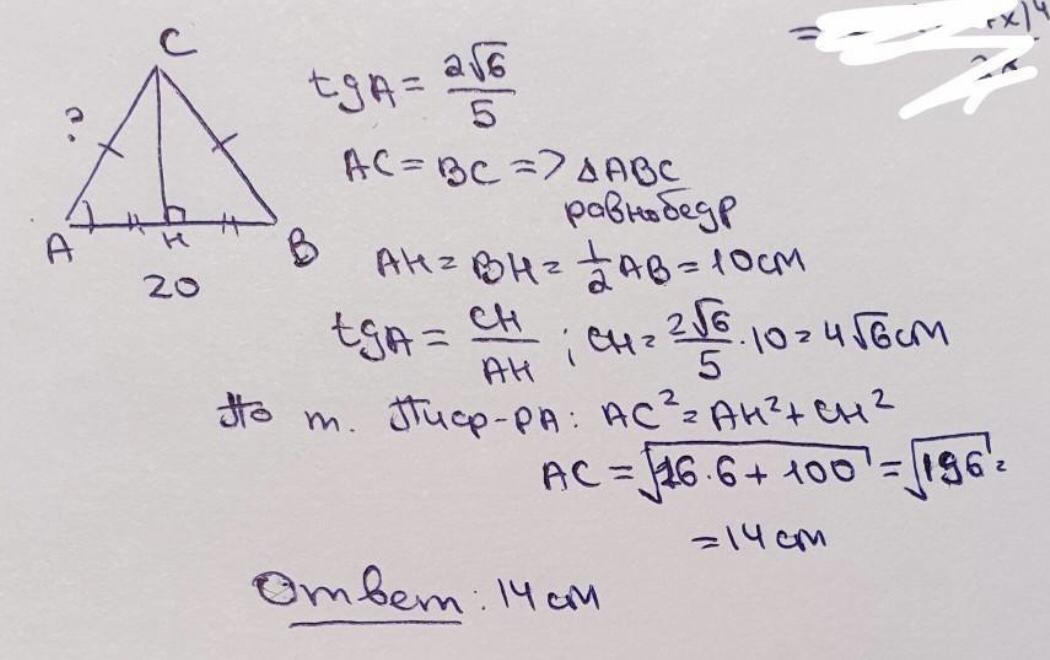 C
?
A
H
B
20
tgA = 2√6/5
AC = BC => ΔABC
равнобедр
AH = BH = 1/2 AB = 10 см
tgA = CH/AH ; CH = 2√6/5 · 10 = 4√6 см
По т. Пиф-РА: AC² = AH² + CH²
AC = √(16·6 + 100) = √196 =
= 14 см
Ответ: 14 см